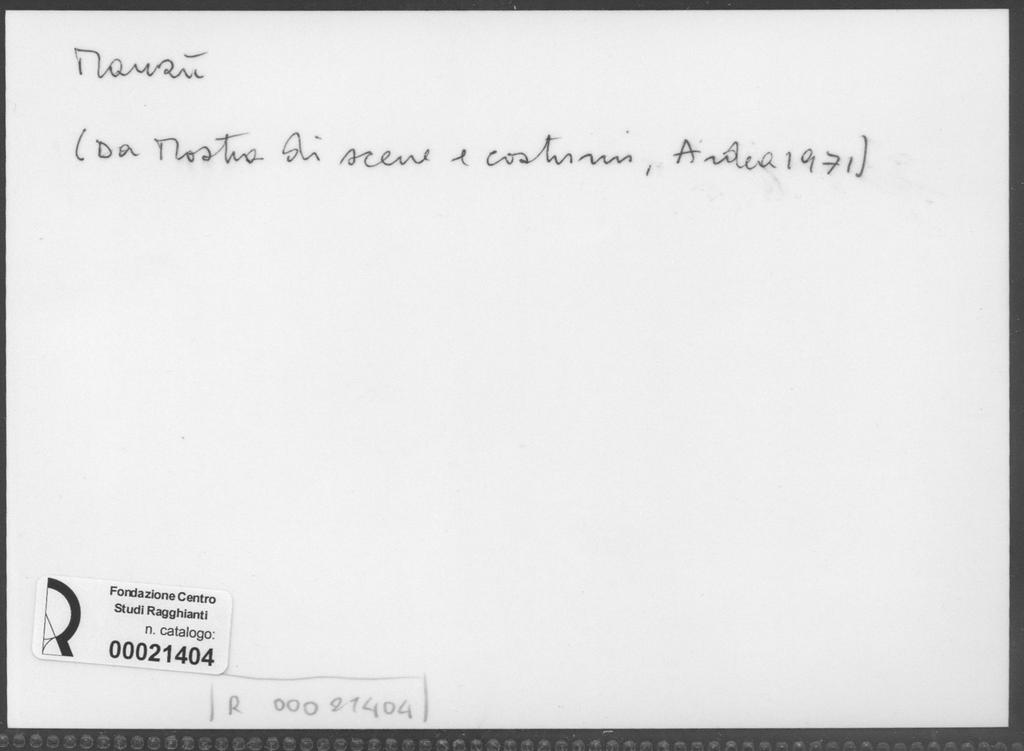 Manzù
(Da Mostra di scene e costumi, Ardea 1971)
Fondazione Centro
Studi Ragghianti
n. catalogo:
00021404
R 00021404